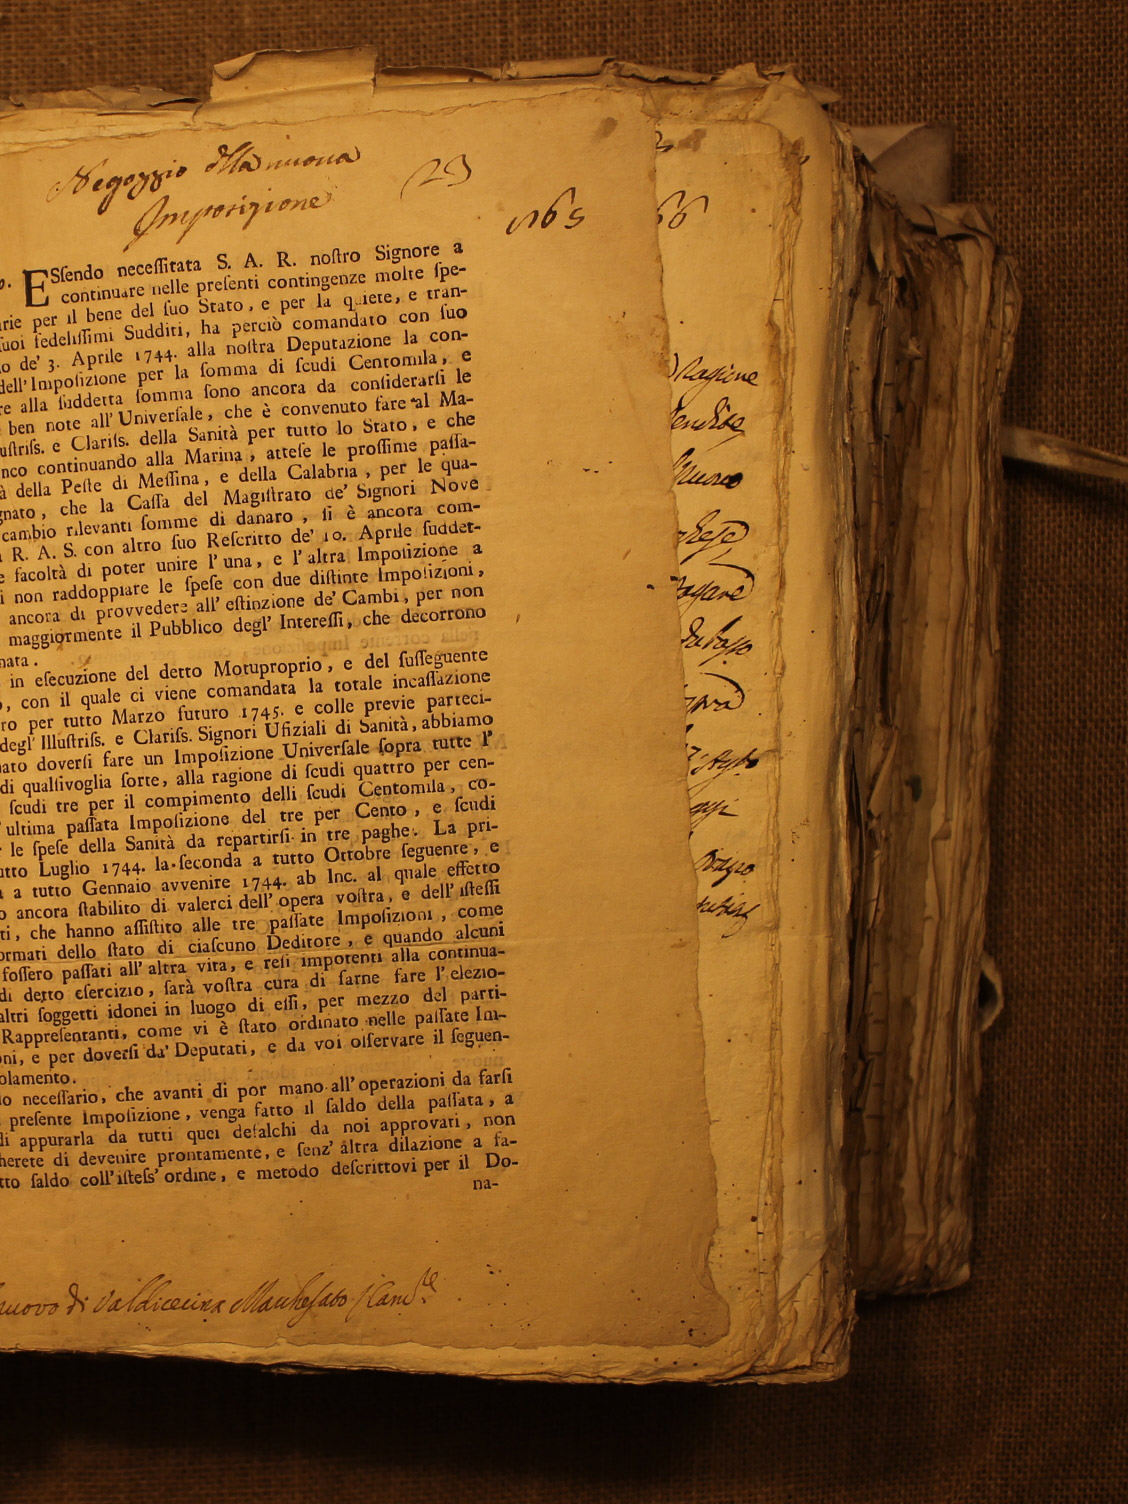 Negozzio della nuova
Imposizione
23
165
66
ESsendo necessitata S. A. R. nostro Signore a
continuare nelle presenti contingenze molte spe-
rie per il bene del suo Stato, e per la quiete, e tran-
suoi fedelissimi Sudditi, ha perciò comandato con suo
o de' 3. Aprile 1744. alla nostra Deputazione la con-
dell'Imposizione per la somma di scudi Centomila, e
re alla suddetta somma sono ancora da considerarsi le
ben note all' Universale, che è convenuto fare al Ma-
lustriss. e Clariss. della Sanità per tutto lo Stato, e che
nco continuando alla Marina, attese le prossime passa-
à della Peste di Messina, e della Calabria, per le qua-
gnato, che la Cassa del Magistrato de' Signori Nove
cambio rilevanti somme di danaro, si è ancora com-
R. A. S. con altro suo Rescritto de' 10. Aprile suddet-
e facoltà di poter unire l' una, e l' altra Imposizione a
i non raddoppiare le spese con due distinte Imposizioni,
ancora di provvedere all' estinzione de' Cambi, per non
maggiormente il Pubblico degl' Interessi, che decorrono
nata.
in esecuzione del detto Motuproprio, e del susseguente
, con il quale ci viene comandata la totale incassazione
ro per tutto Marzo futuro 1745. e colle previe parteci-
degl' Illustriss. e Clariss. Signori Ufiziali di Sanità, abbiamo
nato doversi fare un Imposizione Universale sopra tutte l'
di qualsivoglia sorte, alla ragione di scudi quattro per cen-
scudi tre per il compimento delli scudi Centomila, co-
l' ultima passata Imposizione del tre per Cento, e scudi
r le spese della Sanità da repartirsi in tre paghe. La pri-
utto Luglio 1744. la seconda a tutto Ottobre seguente, e
a a tutto Gennaio avvenire 1744. ab Inc. al quale effetto
o ancora stabilito di valerci dell' opera vostra, e dell' istessi
ti, che hanno assistito alle tre passate Imposizioni, come
ormati dello stato di ciascuno Deditore, e quando alcuni
fossero passati all' altra vita, e resi impotenti alla continua-
di detto esercizio, sarà vostra cura di farne fare l' elezio-
altri soggetti idonei in luogo di essi, per mezzo del parti-
Rappresentanti, come vi è stato ordinato nelle passate Im-
oni, e per doversi da' Deputati, e da voi osservare il seguen-
olamento.
do necessario, che avanti di por mano all' operazioni da farsi
presente Imposizione, venga fatto il saldo della passata, a
di appurarla da tutti quei defalchi da noi approvati, non
herete di devenire prontamente, e senz' altra dilazione a fa-
tto saldo coll'istess' ordine, e metodo descrittovi per il Do-
na-
nuovo di Valdicecina Marchesato